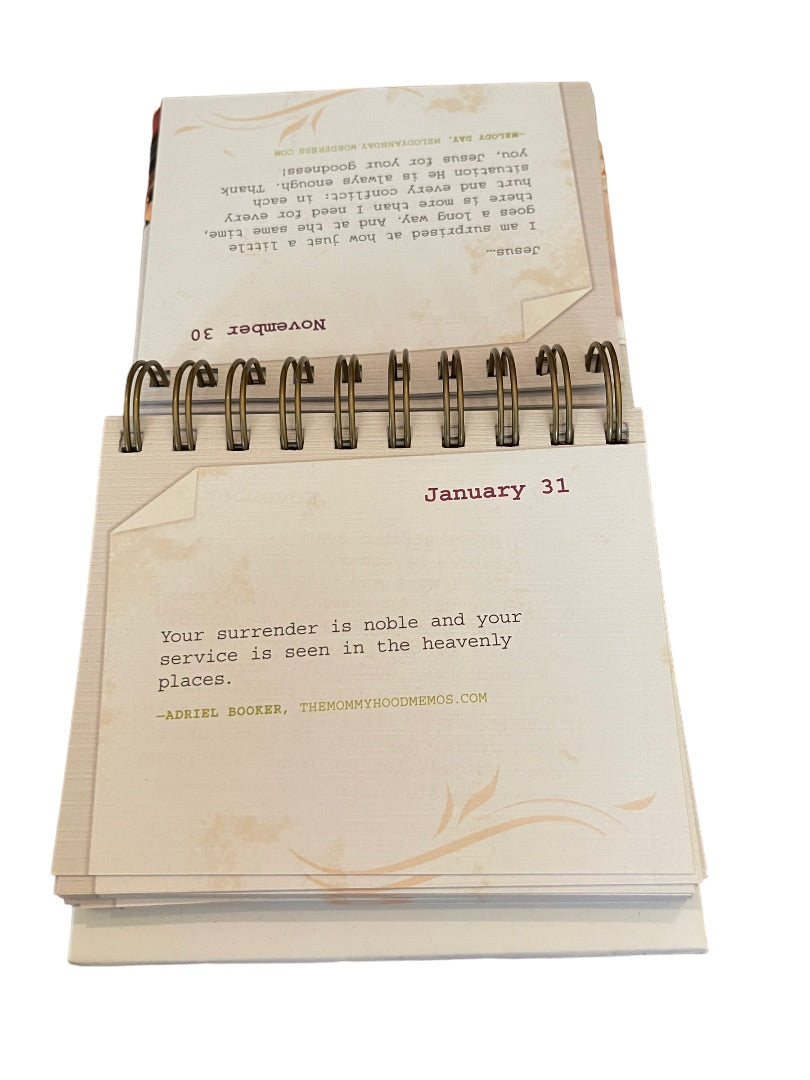 November 30
Jesus…
I am surprised at how just a little
goes a long way. And at the same time,
there is more than I need for every
hurt and every conflict: in each
situation He is always enough. Thank
you, Jesus for your goodness!
—MELODY DAY, MELODYANNDAY.WORDPRESS.COM
January 31
Your surrender is noble and your
service is seen in the heavenly
places.
—ADRIEL BOOKER, THEMOMMYHOODMEMOS.COM